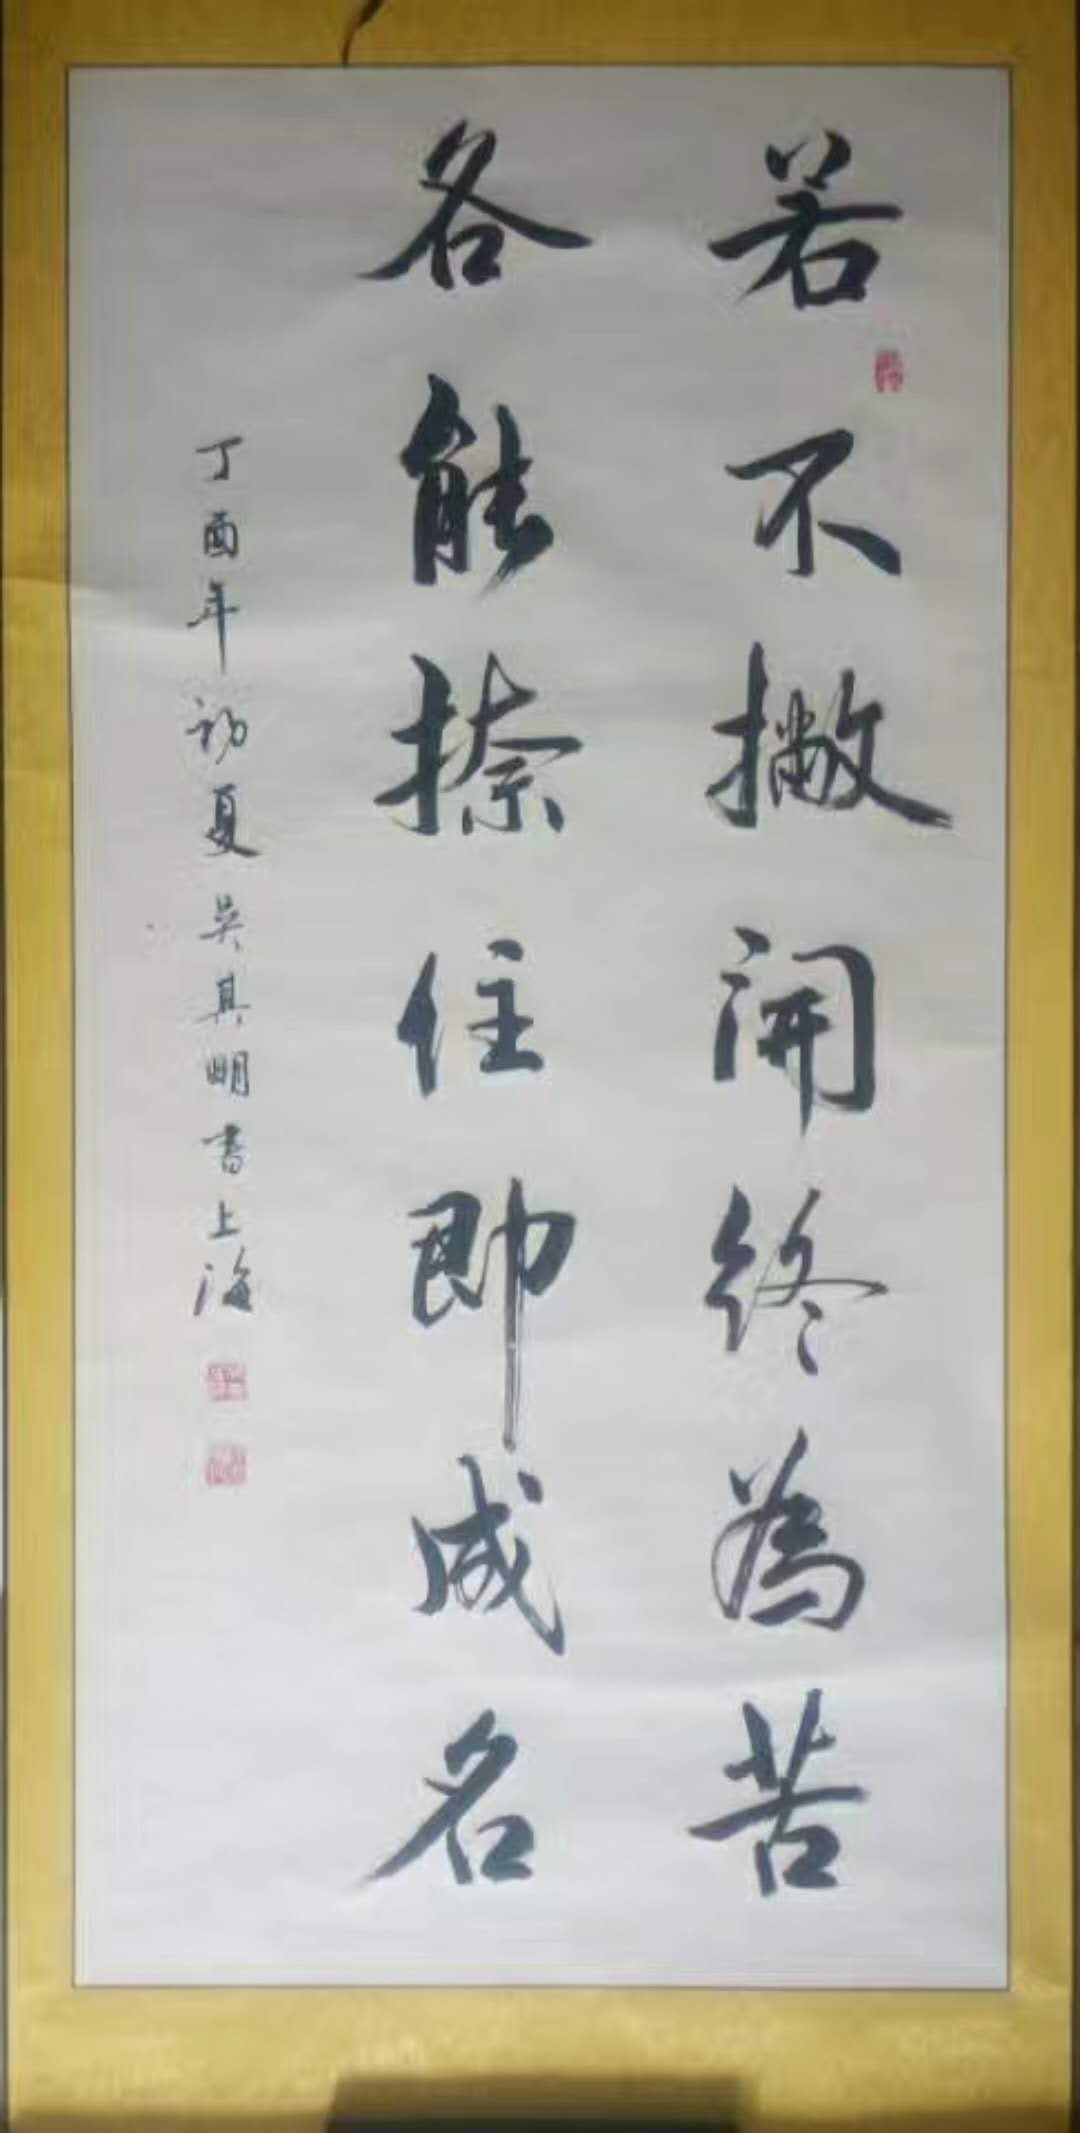 若不撇開終為苦
各能捺住即成名
丁酉年初夏吳其明書上海